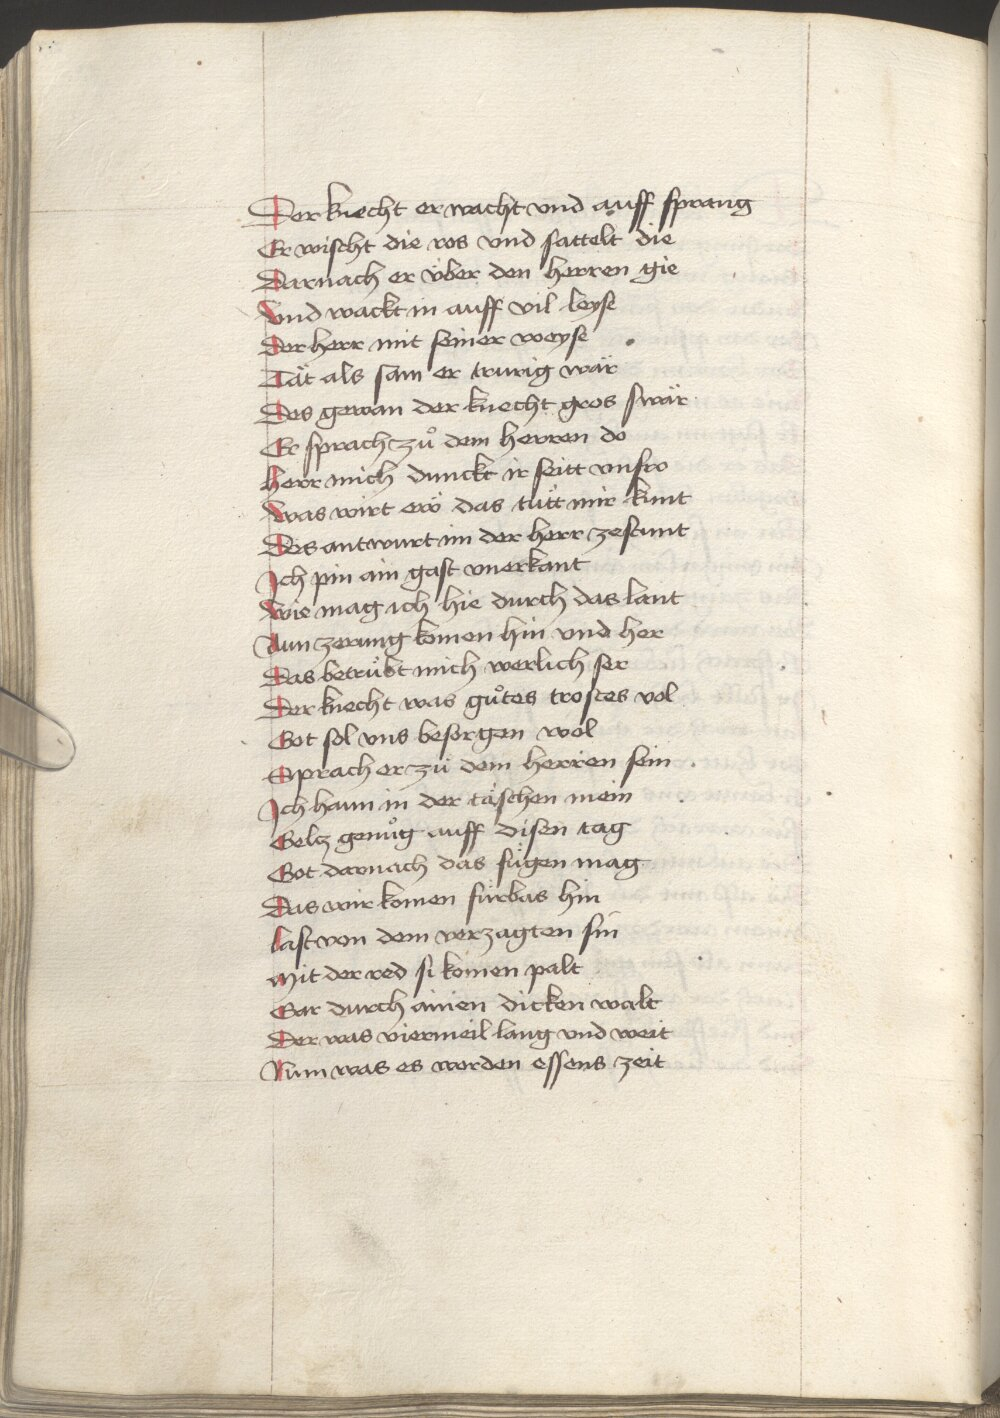 Der knecht er wacht vnd auff sprang
Er wischt die ros vnd sattelt die
Darnach er über den herren gie
Vnd wackt in auff vil leyse
Der herr mit seiner weyse
Tät als sam er trurig wär
Des gewan der knecht gros swär
Er sprach zuͦ dem herren do
herr mich dunckt ir seitt vnfro
Was wirt ew das tuͤtt mir kunt
Des antwurt im der herr zestunt
Ich pin ain gast vnerkant
Wie mag ich hie durch das lant
Aun zerung komen hin vnd her
Das betruͤbt mich werlich ser
Der knecht was guͦtes trostes vol
Got sol vns besorgen wol
Sprach er zu dem herren sein
Ich haun in der täschen mein
Geltz genuͦg auff disen tag
Got darnach das fuͤgen mag
Das wir komen fürbas hin
last von dem verzagten sin
Mit der red si komen palt
Gar durch ainen dicken walt
Der was vier meil lang vnd weit
Nun was es worden essens zeit